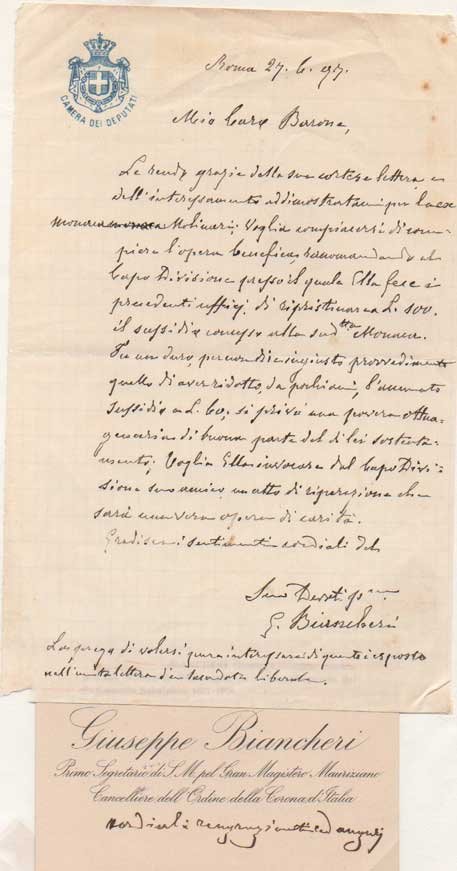 CAMERA DEI DEPUTATI
Roma 27. 6. 97.
Mio Caro Barone,
Le rendo grazie della sua cortese lettera, e
dell'interessamento addimostratami per la ex
monaca Molinari. Voglia compiacersi di com-
piere l'opera benefica raccomandando al
Capo Divisione presso il quale Ella fece i
precedenti uffici, di ripristinare a L. 100.
il sussidio concesso alla sud.tta Monaca.
Fu un duro, per non dire ingiusto provvedimento
quello di aver ridotto, da pochi anni, l'annuato
sussidio a L. 60, si privò una povera ottua-
genaria di buona parte del di lei sostenta-
mento; Voglia Ella invocare dal Capo Divi-
sione suo amico un atto di riparazione che
sarà una vera opera di carità.
Gradisca i sentimenti cordiali del
Suo Devotissmo
G. Biancheri
La prego di volersi pure interessare di quanto è esposto
nell'unita lettera di un sacerdote liberale.
Giuseppe Biancheri
Primo Segretario di S. M. pel Gran Magistero Mauriziano
Cancelliere dell'Ordine della Corona d'Italia
cordiali ringraziamenti ed auguri